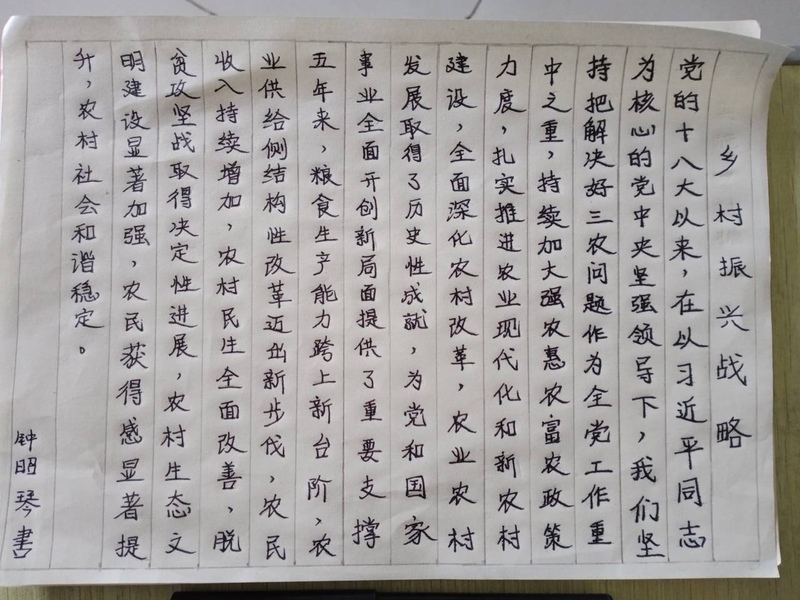 乡村振兴战略
党的十八大以来，在以习近平同志
为核心的党中央坚强领导下，我们坚
持把解决好三农问题作为全党工作重
中之重，持续加大强农惠农富农政策
力度，扎实推进农业现代化和新农村
建设，全面深化农村改革，农业农村
发展取得了历史性成就，为党和国家
事业全面开创新局面提供了重要支撑
五年来，粮食生产能力跨上新台阶，农
业供给侧结构性改革迈出新步伐，农民
收入持续增加，农村民生全面改善，脱
贫攻坚战取得决定性进展，农村生态文
明建设显著加强，农民获得感显著提
升，农村社会和谐稳定。
钟明琴書